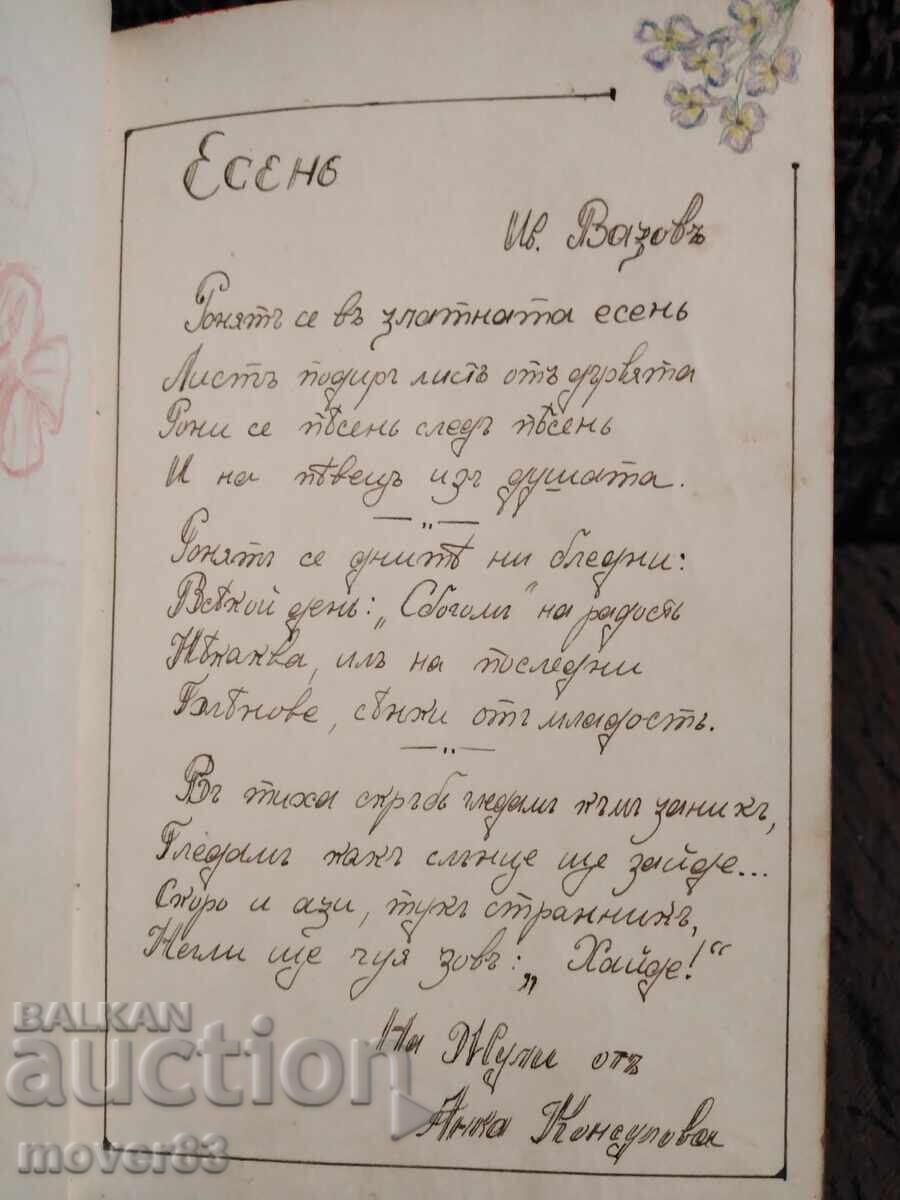 Есень
Ив. Вазовъ
Ронятъ се въ златната есень
Листъ подиръ листъ отъ дървята
Рони се пѣсень следъ пѣсень
И на пѣвецъ изъ душата.
Ронятъ се днитѣ ни бледни:
Всѣкой день: „Сбогомъ" на радость
Нѣкаква, илъ на последни
Блѣнове, сѣнки отъ младость.
Въ тиха скръбь гледамъ къмъ заникъ,
Гледамъ какъ слънце ще зайде...
Скоро и ази, тукъ странникъ,
Негли ще чуя зовъ: „Хайде!“
На Жули отъ
Анка Консулова
BALKAN
auction
mover83